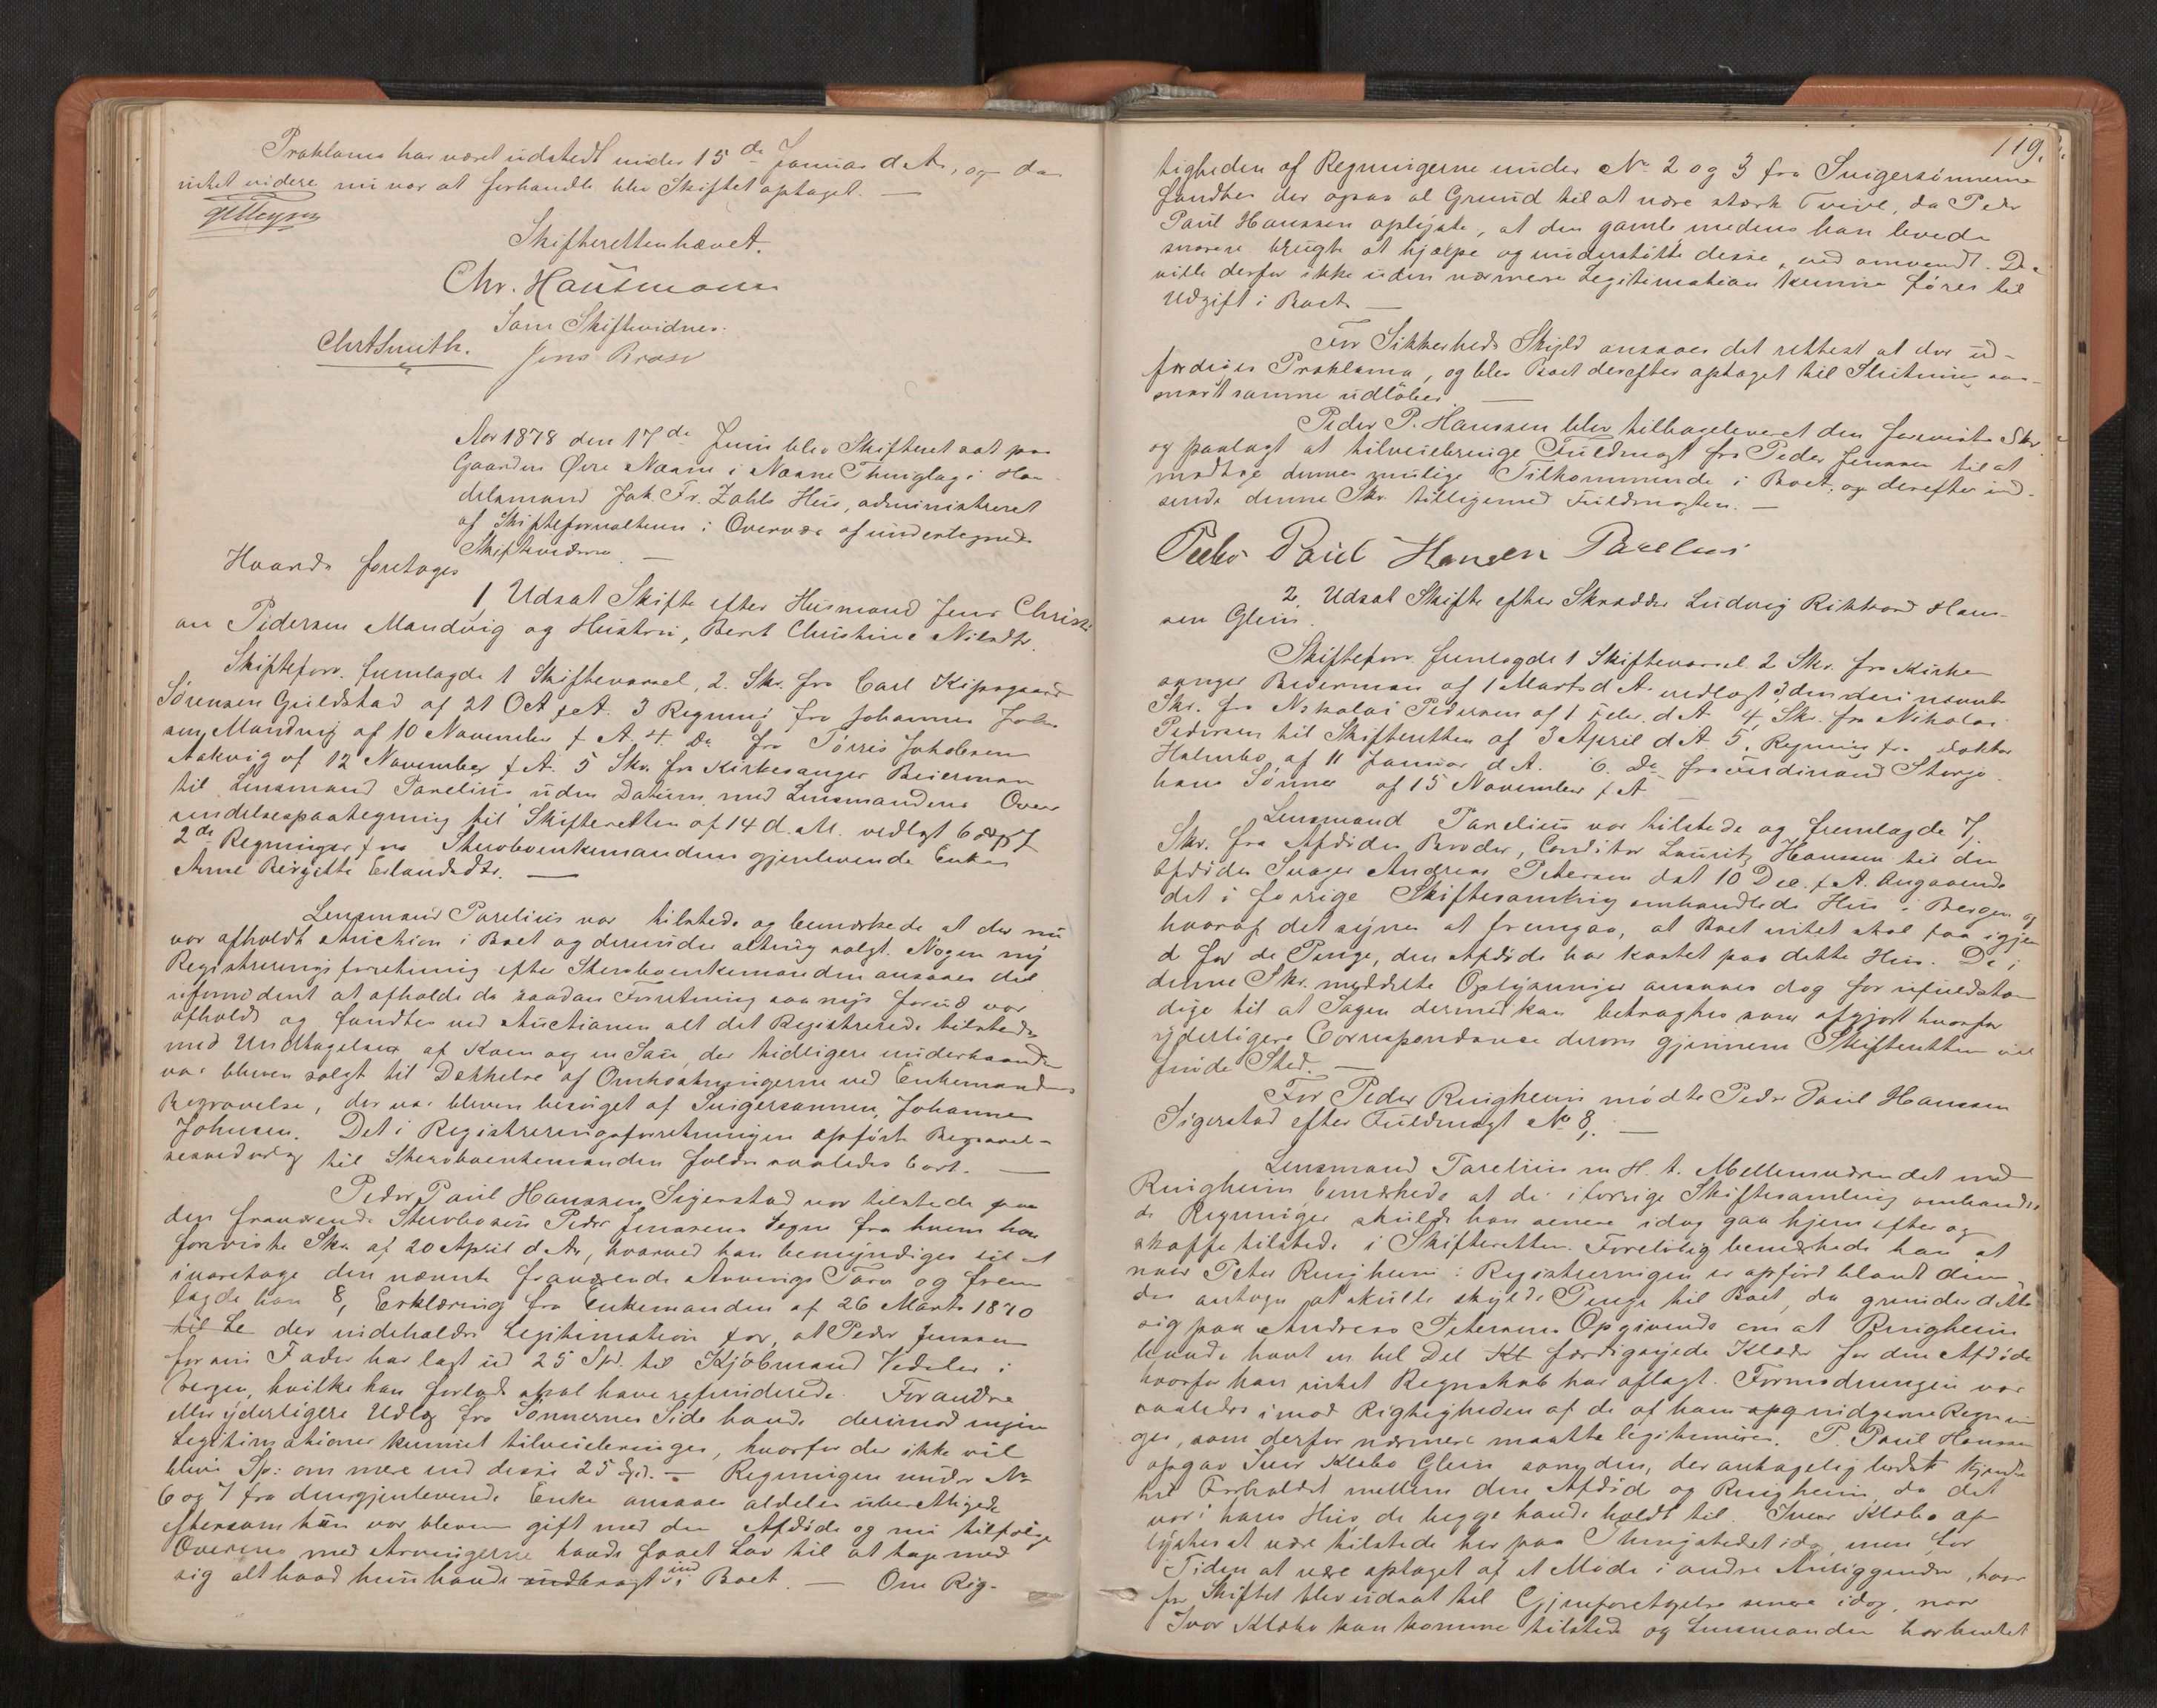 Proklama har været udstedt under 15de Januar d. A., og da
intet videre nu var at forhandle blev Skiftet optaget. —
Skifteretten hævet.
Chr. Hausmann
Som Skiftevidner.
Chr A Smith. Jens Brose
Aar 1878 den 17de Juni blev Skifteret sat paa
Gaarden Øvre Næsne i Næsne Thinglag i Han-
delsmand Jak. Fr. Zahls Hus, administreret
af Skifteforvalteren i Overvær af undertegnede
Skiftevidner. —
Hvorda foretages
1, Udsat Skifte efter Husmand Jens Christi
an Pedersen Mandvig og Hustru, Berit Christine Nilsdtr.
Skifteforv. fremlagde 1 Skiftevarsel, 2. Skr. fra Carl Kipsgaard
Sørensen Guldstad af 21 Oct f. A. 3 Regning fra Johannes John
sen Mandvig af 10 November f. A. 4. Do fra Tørris Jakobsen
Aakvig af 12 November f. A. 5 Skr. fra Kirkesanger Beierman
til Lensmand Parelius uden Datum med Lensmandens Over
sendelsespaategning til Skifteretten af 14 d. M. vedlagt 6 og 7
2de Regninger fra Stervboenkemandens gjenlevende Enke
Anne Birgitte Erlandsdtr. —
Lensmand Parelius var tilstede og bemærkede at der nu
var afholdt Auction i Boet og derunder alting solgt. Nogen ny
Registreringsforretning efter Stervboenkemanden ansaaes det
ufornødent at afholde da saadan Forretning saa nys forud var
afholdt og fandtes ved Auctionen alt det Registrerede tilstede
med Undtagelse af Koen og en Sau, der tidligere underhaanden
var bleven solgt til Dækkelse af Omkostningerne ved Enkemandens
Begravelse, der var bleven besørget af Svigersønnen, Johannes
Johnsen. Det i Registreringsforretningen opførte Begravel-
sesudlæg til Stervboenkemanden falder saaledes bort. —
Peder Paul Hanssen Sigerstad var tilstede paa
den fraværende Stervbosøn Peder Jenssens Vegne fra hvem han
foreviste Skr. af 20 April d. A., hvorved han bemyndiges til at
ivaretage den nævnte fraværende Arvings Tarv og frem
lagde han 8, Erklæring fra Enkemanden af 26 Marts 1870
til Le der indeholder Legitimation for, at Peder Jenssen
for sin Fader har lagt ud 25 Spd. til Kjøbmand Vedeler i
Bergen, hvilke han forlod skal have refunderede. For andre
eller yderligere Udlæg fra Sønnernes Side havde derimod ingen
Legitimationer kunnet tilveiebringes, hvorfor der ikke vil
blive Sp: om mere end disse 25 Spd. — Regningen under No
6 og 7 fra den gjenlevende Enke ansaaes aldeles uberettigede
eftersom hun var bleven gift med den Afdøde og nu tilfølge
Overens med Arvingerne havde faaet Lov til at tage med
sig alt hvad hun havde indbragt ind i Boet. — Om Rig-
119.
tigheden af Regningerne under No 2 og 3 fra Svigersønnerne
fandtes der ogsaa al Grund til at nære stærk Tvivl, da Peder
Paul Hanssen oplyste, at den gamle medens han levede
snarere brugte at hjælpe og understøtte disse, end omvendt. De
ville derfor ikke uden nærmere Legitimation kunne føres til
Udgift i Boet. —
For Sikkerheds Skyld ansaaes det rettest at der ud-
færdiges Proklama, og blev Boet derefter optaget til Slutning saa-
snart samme udløber. —
Peder P. Hanssen blev tilbageleveret den foreviste Skr.
og paalagt at tilveiebringe Fuldmagt fra Peder Jenssen til at
modtage dennes mulige Tilkommende i Boet, og derefter ind-
sende denne Skr. tilligemed Fuldmagten. —
Peder Paul Hansen Parelius
2 Udsat Skifte efter Skrædder Ludvig Rikhard Han-
sen Glein.
Skifteforv. fremlagde 1 Skiftevarsel 2 Skr. fra Kirke
sanger Beierman af 1 Marts d. A. vedlagt 3, den deri nævnte
Skr. fra Nikolai Pedersen af 1 Febr. d. A. 4, Skr. fra Nikolai
Pedersen til Skifteretten af 3 April d. A. 5, Regning fra Doktor
Holmbo af 11 Januar d. A. 6. Do fra Ferdinand Storjo-
hans Sønner af 15 November f. A. —
Lensmand Parelius var tilstede og fremlagde 7,
Skr. fra Afdødes Broder, Conditor Lauritz Hanssen til den
Afdødes Svager Andreas Petersen dat 10 Dec. f. A. Angaaende
det i forrige Skiftesamling omhandlede Hus i Bergen og
hvoraf det synes at fremgaa, at Boet intet skal faa igjen
de for de Penge, den Afdøde har kostet paa dette Hus. De i
denne Skr. meddelte Oplysninger ansaaes dog for ufuldstæn
dige til at Sagen dermed kan betragtes som afgjort hvorfor
yderligere Correspondance derom gjennem Skifteretten vil
finde Sted. —
For Peder Ringheim mødte Peder Paul Hanssen
Sigerstad efter Fuldmagt No 8,. —
Lensmand Parelius m. H. t. Mellemværendet med
Ringheim bemærkede at de i forrige Skiftesamling omhandle
de Regninger skulde han senere idag gaa hjem efter og
skaffe tilstede i Skifteretten. Foreløbig bemærkede han at
naar Peter Ringheim i Registreringen er opført blandt dem
der antoges at skulle skylde Penge til Boet, da grunder dette
sig paa Andreas Petersens Opgivende om at Ringheim
havde havt en hel Del Kl færdigsyede Klæder for den Afdøde
hvorfor han intet Regnskab har aflagt. Formodningen var
saaledes imod Rigtigheden af de af ham opg indgivne Regnin
ger, som derfor nærmere maatte legitimeres. P. Paul Hanssen
opgav Iver Klæbo Glein som den, der antagelig bedst kjendte
til Forholdet mellem den Afdøde og Ringheim, da det
var i hans Hus de begge havde holdt til. Iver Klæbo op
lystes at være tilstede her paa Thingstedet idag, men for
Tiden at være optaget af et Møde i andre Anliggender, hvor
for Skiftet blev udsat til Gjenforetagelse senere idag, naar
Iver Klæbo kan komme tilstede og Lensmanden har hentet